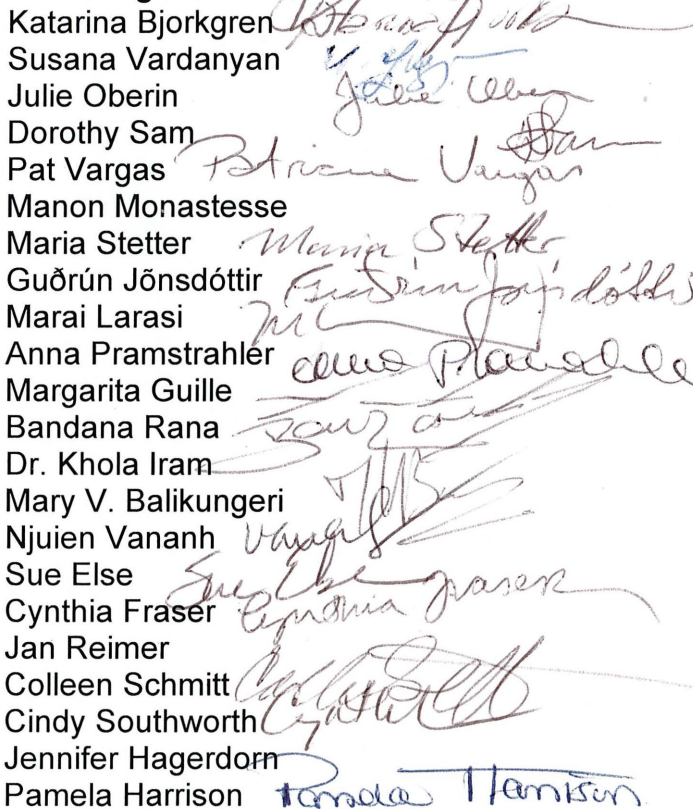 Katarina Bjorkgren
Susana Vardanyan
Julie Oberin Julie Oberin
Dorothy Sam DSam
Pat Vargas Patricia Vargas
Manon Monastesse
Maria Stetter Maria Stetter
Guðrún Jõnsdóttir Guðrún Jónsdóttir
Marai Larasi
Anna Pramstrahler
Margarita Guille
Bandana Rana
Dr. Khola Iram
Mary V. Balikungeri
Njuien Vananh
Sue Else Sue Else
Cynthia Fraser Cynthia Fraser
Jan Reimer
Colleen Schmitt
Cindy Southworth
Jennifer Hagerdorn
Pamela Harrison Pamela Harrison